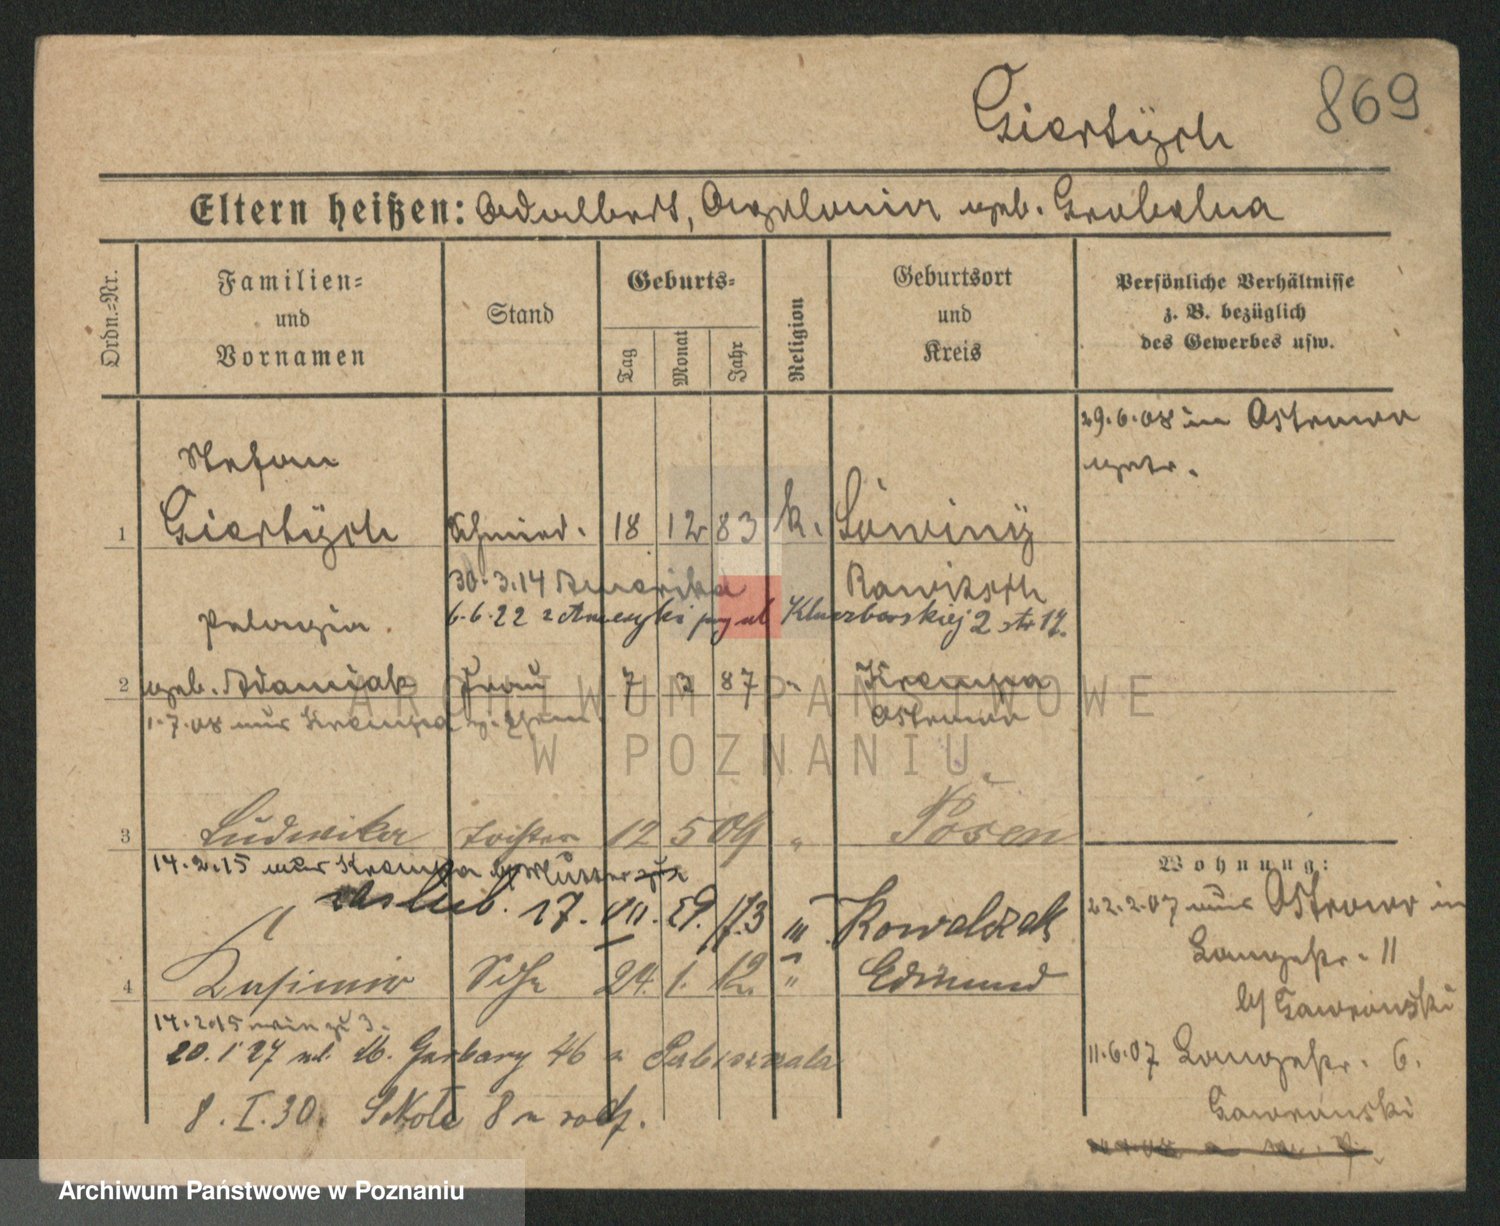 869
Giertÿch
Eltern heißen: Adalbert, Apolonia geb. Grobelna
Ordn.-Nr.
Familien- und Vornamen
Stand
Geburts-
Tag
Monat
Jahr
Religion
Geburtsort und Kreis
Persönliche Verhältnisse z. B. bezüglich des Gewerbes usw.
29.6.08 in Ostrowo
getr.
Stefan
1 Giertÿch Schmied. 18 12 83 k.
30.3.14 Amerika Rawitsch
6.6.22 z Ameryki ul Kluczborskiej 2 str 17.
Pelagia
2 geb. Adamiak Frau 7 3 87 " Krempa
1.7.08 aus Krempa Ostrowo
3 Ludwika Tochter 12 5 09 " Posen
14.2.15 nach Krempa Mutter
ślub. 17. VII. 29. 173 III Kowalczak
4 Kasimir Sohn 24. 1. 12. " Edmund
14.2.15 wie zu 3.
20.1 27 ul. W. Garbary 46 u
8.I.30. 8 u rodz.
Wohnung:
22.2.07 aus Ostrowo in
Langestr. 11
b/ Gaworonski
11.6.07 Langestr. 6.
Gaworonski
ARCHIWUM PAŃSTWOWE
W POZNANIU
Archiwum Państwowe w Poznaniu